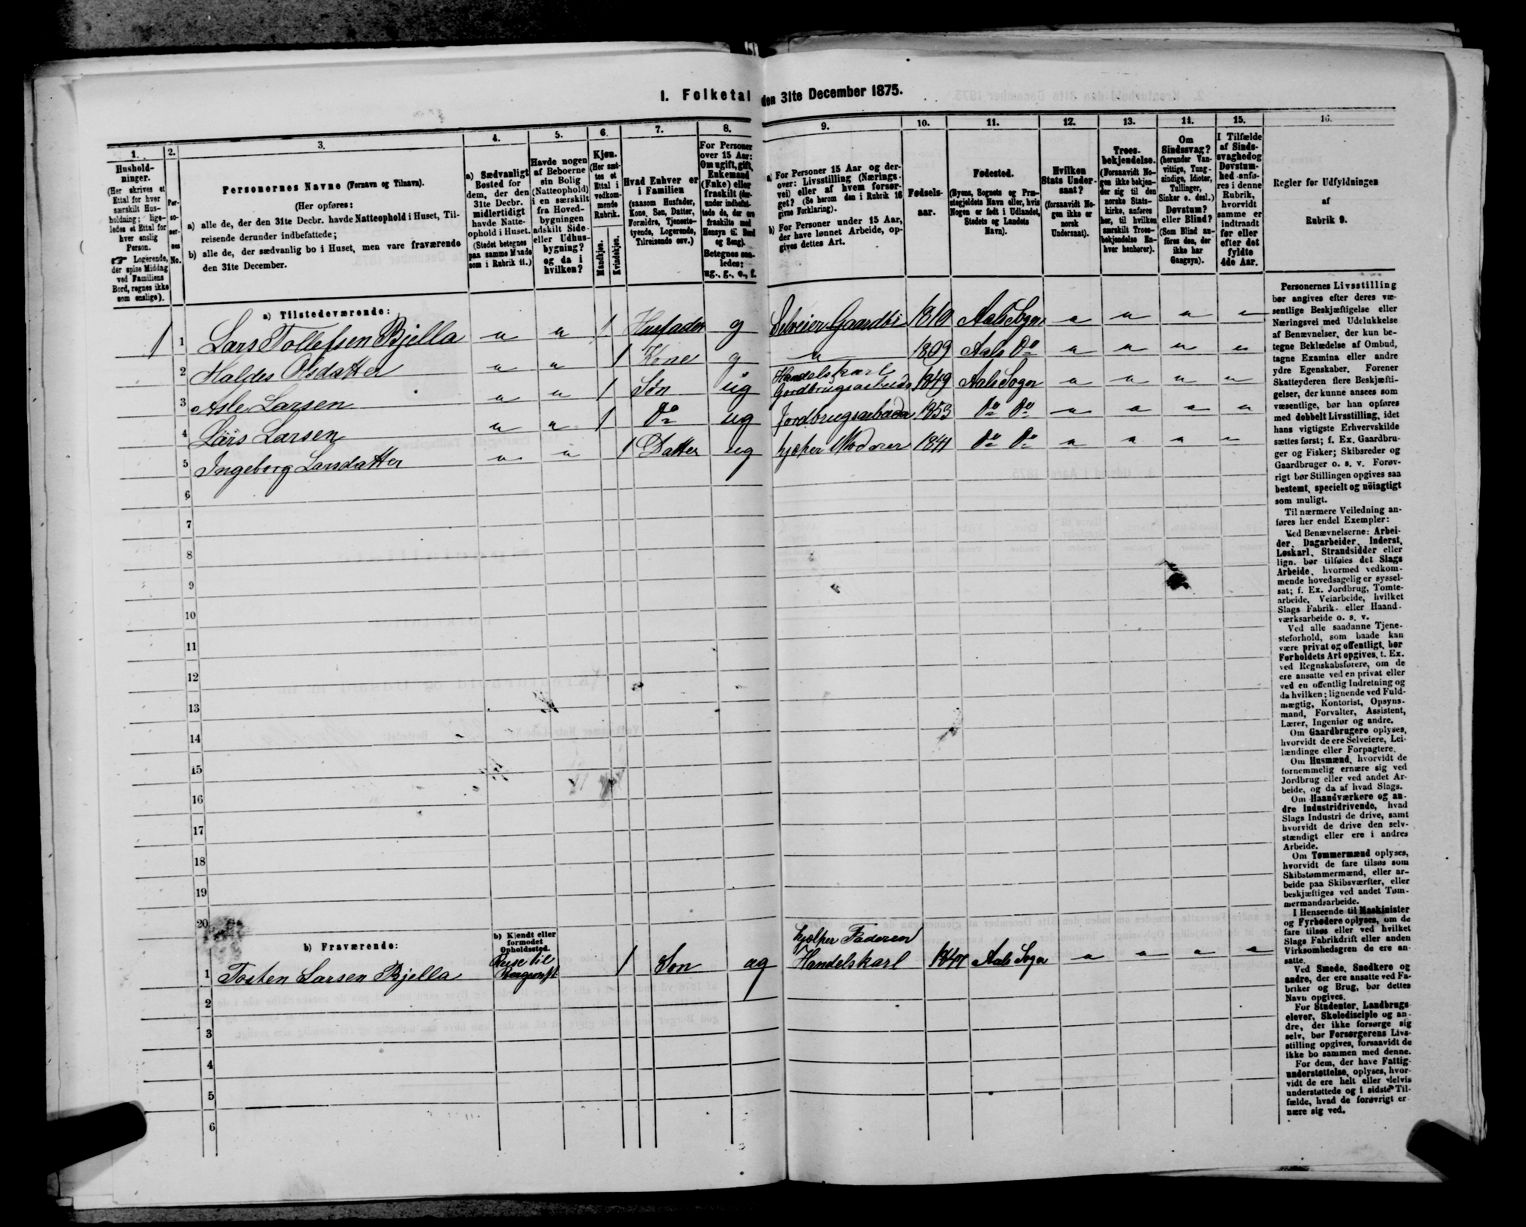 1. Folketal den 31te December 1875.
1.
Hushold-
ninger.
(Her skrives et
Ettal for hver
særskilt Hus-
holdning; lige-
ledes et Ettal for
hver enslig
Person.
Logerende,
der spise Middag
ved Familiens
Bord, regnes ikke
som enslige).
2.
Per-
so-
ner-
nes
No.
3.
Personernes Navne (Fornavn og Tilnavn).
(Her opføres:
a) alle de, der den 31te Decbr. havde Natteophold i Huset, Til-
reisende derunder indbefattede;
b) alle de, der sædvanlig bo i Huset, men vare fraværende
den 31te December.
4.
a) Sædvanligt
Bosted for
dem, der den
31te Decbr.
midlertidigt
havde Natte-
ophold i Huset.
(Stedet betegnes
paa samme Maade
som i Rubrik 11.)
5.
Havde nogen
af Beboerne
sin Bolig
(Natteophold)
i en særskilt
fra Hoved-
bygningen
adskilt Side-
eller Udhus-
bygning?
og da i
hvilken?
6.
Kjøn.
(Her sæt-
tes et
Ettal i
vedkom-
mende
Rubrik.
Mandkjøn.
Kvindekjøn.
7.
Hvad Enhver er
i Familien
(saasom Husfader,
Kone, Søn, Datter,
Forældre, Tjeneste-
tyende, Logerende,
Tilreisende osv.)
8.
For Personer
over 15 Aar:
Om ugift, gift,
Enkemand
(Enke) eller
fraskilt (der-
under indbefat-
tede de, der ere
fraskilte med
Hensyn til Bord
og Seng).
Betegnes saa-
ledes:
ug., g., e., f.
9.
a) For Personer 15 Aar og der-
over: Livsstilling (Nærings-
vei) eller af hvem forsør-
get? (Se herom den i Rubrik 16
givne Forklaring).
b) For Personer under 15 Aar,
der have lønnet Arbeide, op-
gives dettes Art.
10.
Fødsels-
aar.
11.
Fødested.
(Byens, Sognets og Præ-
stegjeldets Navn eller, hvis
Nogen er født i Udlandet,
Stedets og Landets
Navn).
12.
Hvilken
Stats Under-
saat?
(forsaavidt No-
gen ikke er
norsk
Undersaat).
13.
Troes-
bekjendelse.
(Forsaavidt No-
gen ikke bekjen-
der sig til den
norske Stats-
kirke, anføres
her, til hvilken
særskilt Troes-
bekjendelse En-
hver henhører).
14.
Om
Sindssvag?
(herunder Van-
vittige, Tung-
sindige, Idioter,
Tullinger,
Sinker o. desl.)
Døvstum?
eller Blind?
(Som Blind an-
føres den, der
ikke har
Gangsyn).
15.
I Tilfælde
af Sinds-
svaghed og
Døvstum-
hed anfø-
res i denne
Rubrik,
hvorvidt
samme er
indtraadt
før eller
efter det
fyldte
4de Aar.
16.
Regler for Udfyldningen
af
Rubrik 9.
a) Tilstedeværende:
1 1 Lars Tollefsen Bjella " " 1 Husfader g Selveier Gaardbr 1810 Aals Sogn " " " "
2 Haldes Olsdatter " " 1 Kone g " 1809 Aals Do " " " "
3 Asle Larsen " " 1 Søn ug Handelskarl Jordbrugsarbeide 1849 Aals Sogn " " " "
4 Lars Larsen " " 1 Do ug Jordbrugsarbeide 1853 Do Do " " " "
5 Ingeborg Larsdatter " " 1 Datter ug hjælper Moderen 1841 Do Do " " " "
6
7
8
9
10
11
12
13
14
15
16
17
18
19
20
b) Fraværende:
b) Kjendt eller
formodet
Opholdssted.
1 Tosten Larsen Bjella Reise til 1 Søn ug hjælper Faderen Handelskarl Aals Sogn " " " "
2
3
4
5
6
Personernes Livsstilling
bør angives efter deres væ-
sentlige Beskjæftigelse eller
Næringsvei med Udelukkelse
af Benævnelser, der kun be-
tegne Beklædelse af Ombud,
tagne Examina eller andre
ydre Egenskaber. Forener
Skatteyderen flere Beskjæfti-
gelser, der kunne ansees som
væsentlige, bør han opføres
med dobbelt Livsstilling, idet
hans vigtigste Erhvervskilde
sættes først; f. Ex. Gaardbru-
ger og Fisker; Skibsreder og
Gaardbruger o. s. v. Forøv-
rigt bør Stillingen opgives saa
bestemt, specielt og nøiagtigt
som muligt.
Til nærmere Veiledning an-
føres her endel Exempler:
Ved Benævnelserne: Arbei-
der, Dagarbeider, Inderst,
Løskarl, Strandsidder eller
lign. bør tilføies det Slags
Arbeide, hvormed vedkom-
mende hovedsagelig er syssel-
sat; f. Ex. Jordbrug, Tomte-
arbeide, Veiarbeide, hvilket
Slags Fabrik- eller Haand-
værksarbeide o. s. v.
Ved alle saadanne Tjene-
steforhold, som baade kan
være privat og offentligt, bør
Forholdets Art opgives, t. Ex.
ved Regnskabsførere, om de
ere ansatte ved en privat eller
ved en offentlig Indretning og
da hvilken; lignende ved Fuld-
mægtig, Kontorist, Opsyns-
mand, Forvalter, Assistent,
Lærer, Ingeniør og andre.
Om Gaardbrugere oplyses,
hvorvidt de ere Selveiere, Lei-
lændinge eller Forpagtere.
Om Husmænd, hvorvidt de
fornemmelig ernære sig ved
Jordbrug eller ved andet Ar-
beide, og da af hvad Slags.
Om Haandværkere og an-
dre Industridrivende, hvad
Slags Industri de drive, samt
hvorvidt de drive den selv-
stændigt eller ere i andres
Arbeide.
Om Tømmermænd oplyses,
hvorvidt de fare tilsøs som
Skibstømmermænd, eller ar-
beide paa Skibsværfter, eller
beskjæftiges ved andet Tøm-
mermandsarbeide.
I Henseende til Maskinister
og Fyrbødere oplyses, om de
fare tilsøs eller ved hvilket
Slags Fabrikdrift eller anden
Virksomhedsgren de ere an-
satte.
Ved Smede, Snedkere og
andre, der ere ansatte ved Fa-
briker og Brug, bør dettes
Navn opgives.
For Studenter, Landbrugs-
elever, Skoledisciple og an-
dre, der ikke forsørge sig
selv, bør Forsørgerens Livs-
stilling opgives, forsaavidt de
ikke bo sammen med denne.
For dem, der have Fattig-
understøttelse, oplyses, hvor-
vidt de ere helt eller delvis
understøttede og i sidste Til-
fælde, hvad de forøvrigt er-
nære sig ved.